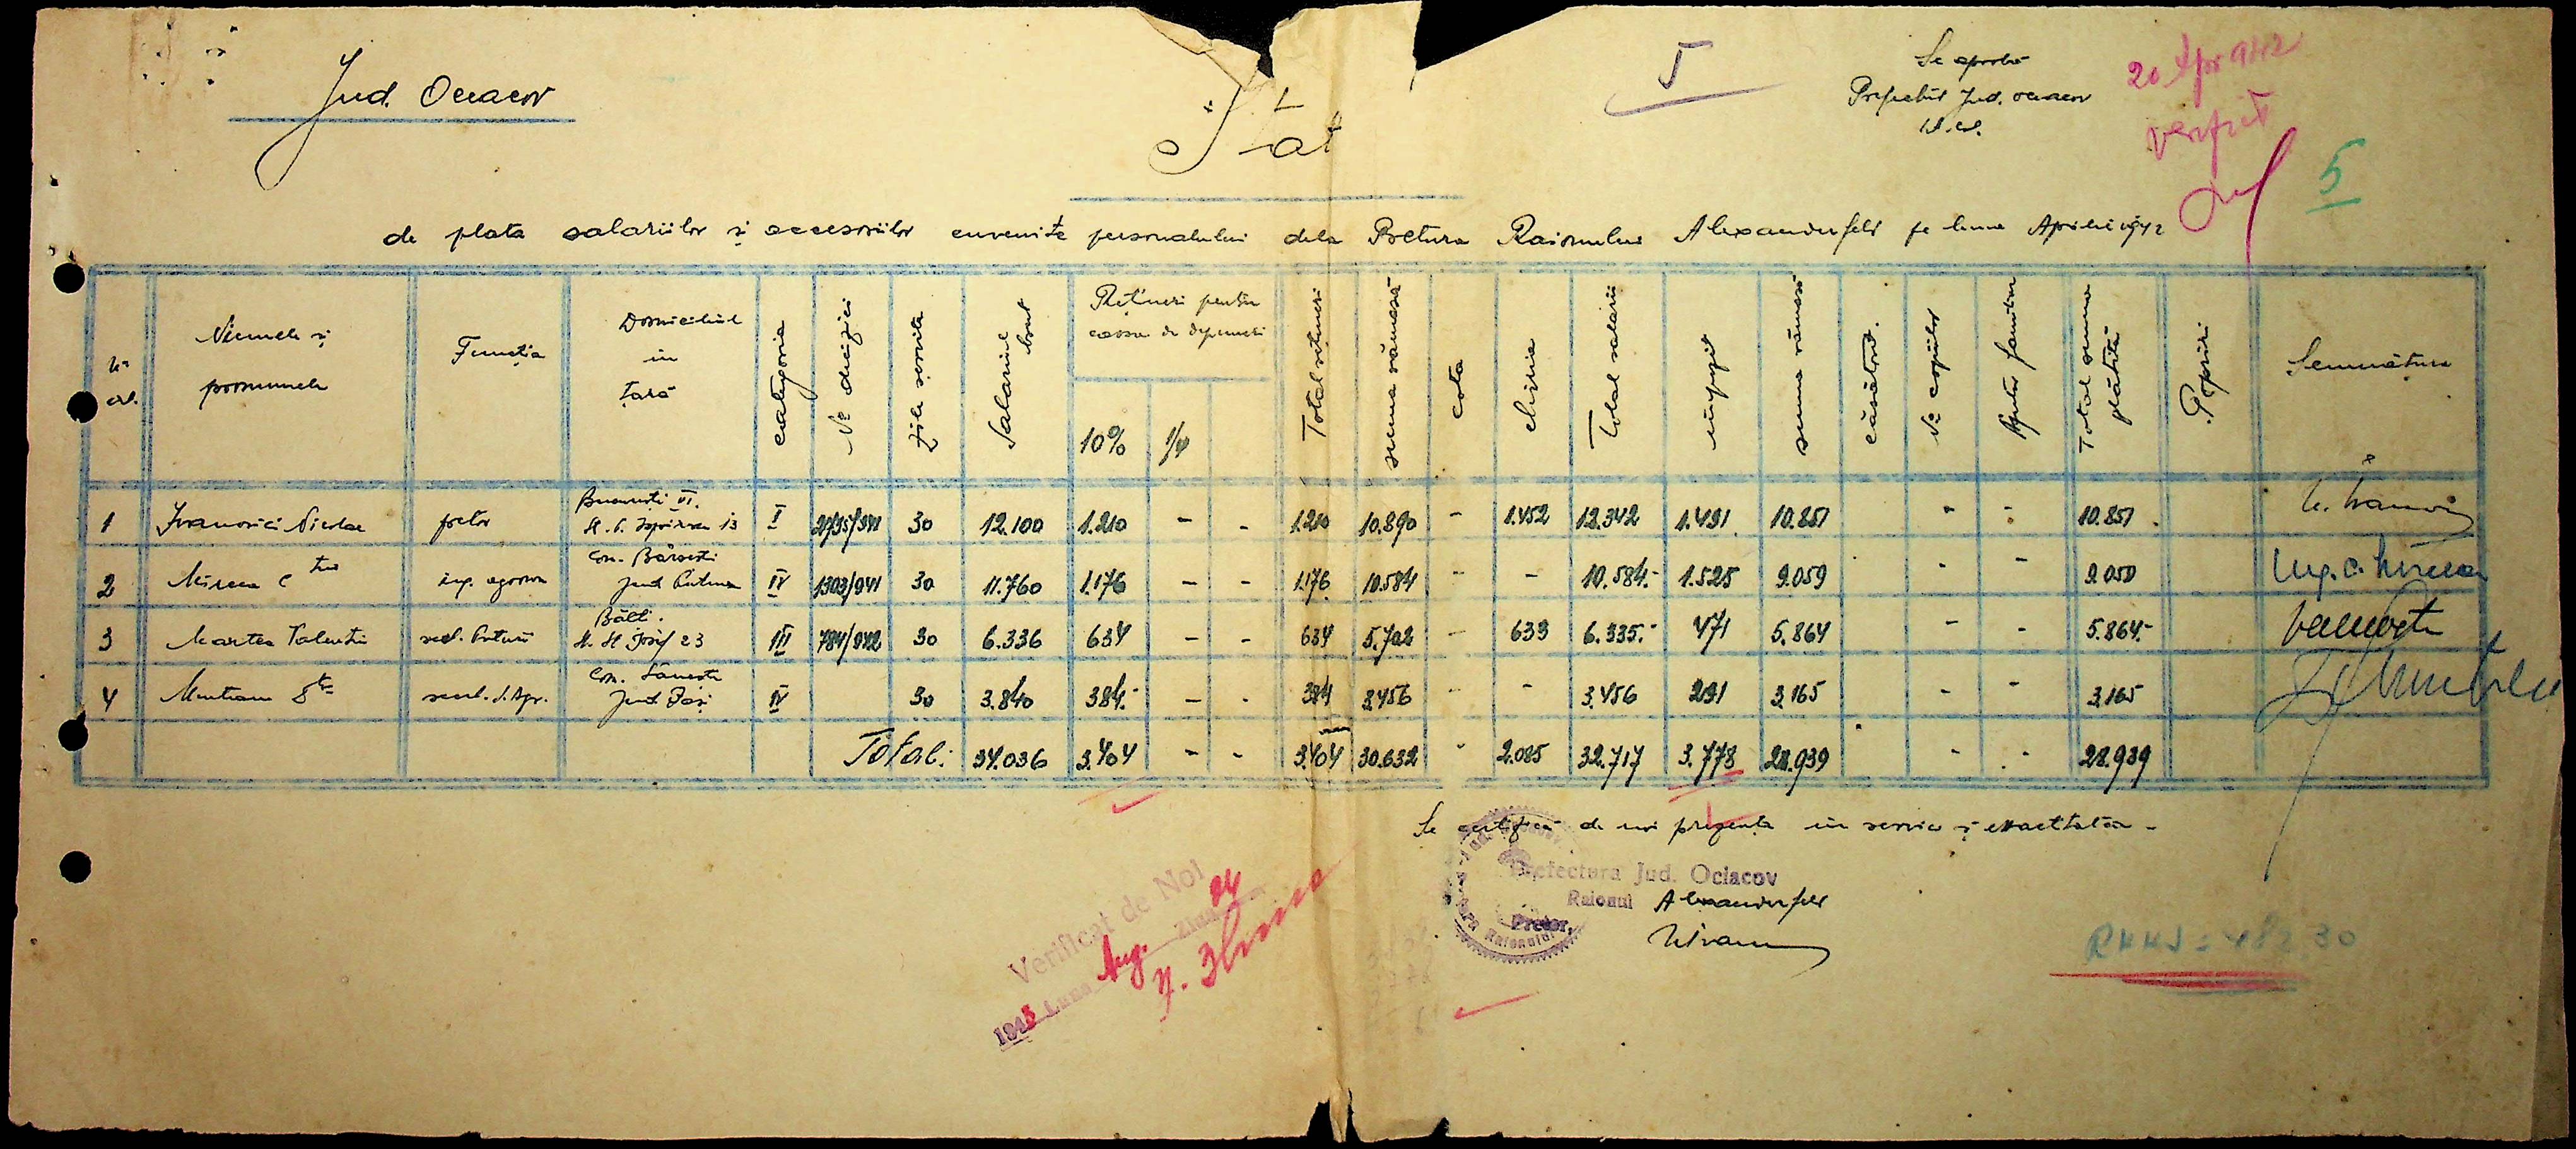 Jud. Ociacov
5
Se aprobă
Prefectul Jud. Ociacov
20 Apr 942
verificat
5
Stat
de plata salariilor și accesoriilor cuvenite personalului dela Pretura Raionului Alexanderfeld pe luna Aprilie 1942
No crt. Numele și pronumele Funcția Domiciliul în țară categoria No deciziei zile servite Salariul brut Rețineri pentru cassa de depuneri 10% 1/4 Total rețineri suma rămasă cota chiria Total salarii impozit suma rămasă căsătorit. No copiilor Ajutor familiar Total suma plătită Popriri Semnătura
1 Ivanovici Nicolae pretor București VI. 13 I 30 12.100 1.210 - - 1.210 10.890 - 1.452 12.342 1.491 10.851 - - 10.851
2 Mircea C-tin ing. agronom Com. Bârsești Jud Putna IV 1303/941 30 11.760 1.176 - - 1.176 10.584 - - 10.584.- 1.525 9.059 - - 9.059 Ing. C. Mircea
3 Martea Valentin secr. Preturii Bălți. Iosif 23 III 784/942 30 6.336 634 - - 634 5.702 - 633 6.335.- 471 5.864 - - 5.864.-
4 Munteanu Com. Jud Iași IV 30 3.840 384.- - - 384 3.456 - - 3.456 291 3.165 - - 3.165
Total: 34.036 3.404 - - 3.404 30.632 - 2.085 32.717 3.778 28.939 - - 28.939
Se certifică de noi prezența în serviciu și exactitatea -
Prefectura Jud. Ociacov
Raionul Alexanderfeld
Pretor,
Verificat de Noi
1943 Luna Aug. Ziua 24